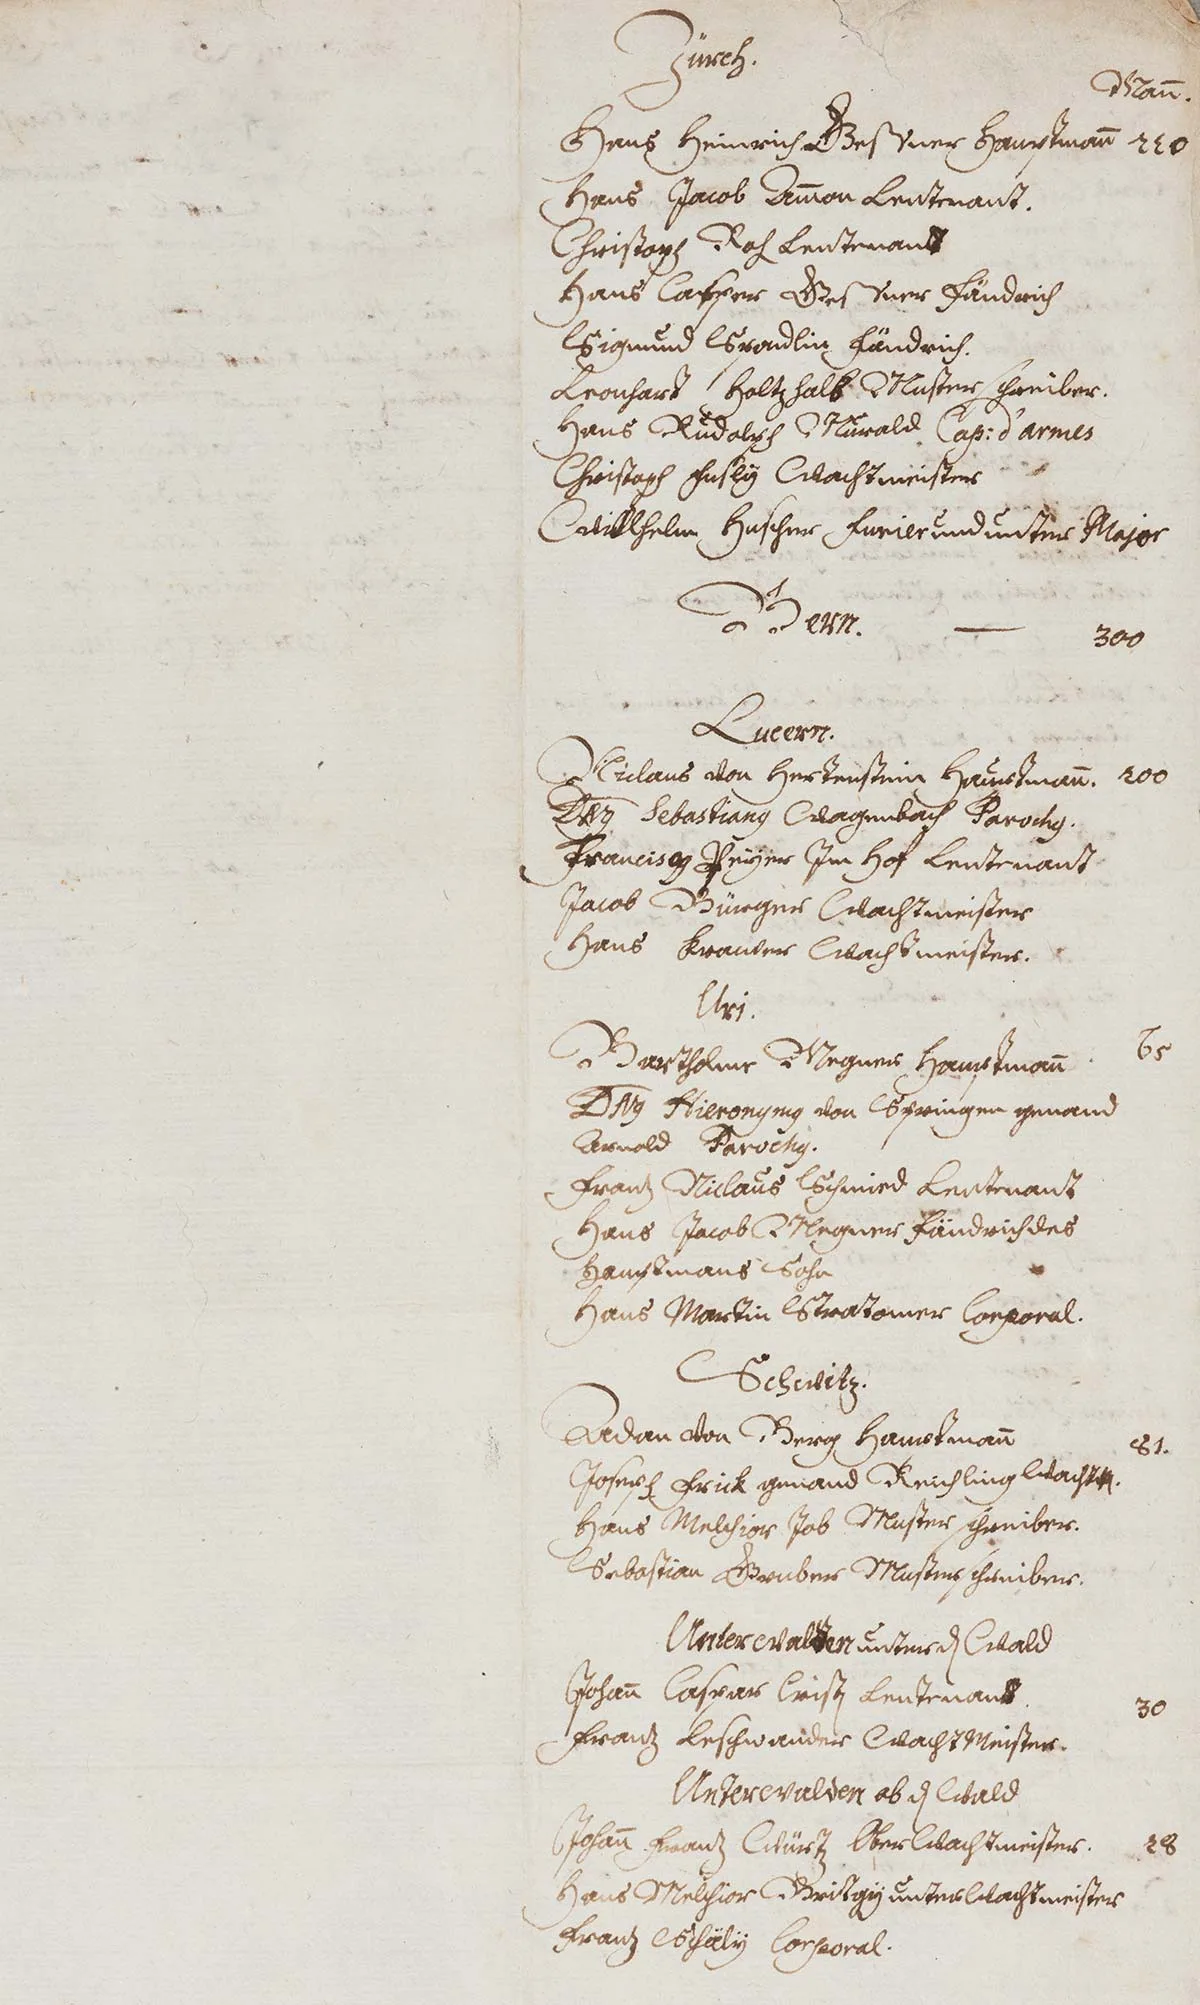 Zürch.
Mañ.
Hans Heinrich Gessner Hauptmañ
Hans Jacob Am̃on Leutenant.
Christoph Roh Leutenant
Hans Casper Gessner Fändrich
Sigmund Spöndlin Fändrich.
Leonhart Holtzhalb Musterschreiber.
Hans Rudolph Murald Cap: d'armes
Christoph Fusly Wachtmeister
Willhelm Huscher Furier und unter Major
Bern. — 300
Lucern.
Niclaus von Hertenstein Hauptmañ. 200
Sebastiany Wagenbach Parochy.
Franciscy Peÿer Im Hof Leutenant
Jacob Bürger Wachtmeister
Hans Krauer Wachtmeister.
Uri.
Bartholme Megner Hauptmañ 65
Hieronymy von Springen genand
Arnold Parochy.
Frantz Niclaus Schmied Leutenant
Hans Jacob Megner Fändrich des
Hauptmans Sohn
Hans Martin Stratomer Corporal.
Schwitz.
Adan von Berg Hauptmañ 81.
Joseph Frick genand Reichling Wachtm.
Hans Melchior Job Musterschreiber.
Sebastian Gruber Musterschreiber.
Unterwalden unter d Wald
Johañ Caspar Crist Leutenant 30
Frantz Leschwander Wacht Meister.
Unterwalden ob d Wald
Johañ Frantz Würtz Ober Wachtmeister. 28
Hans Melchior Britzgÿ unter Wachtmeister
Frantz Schälÿ Corporal.